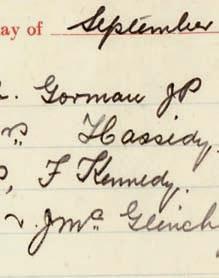 ay of September
Gorman JP
Hassidy.
F Kennedy.
J Mc Glinch